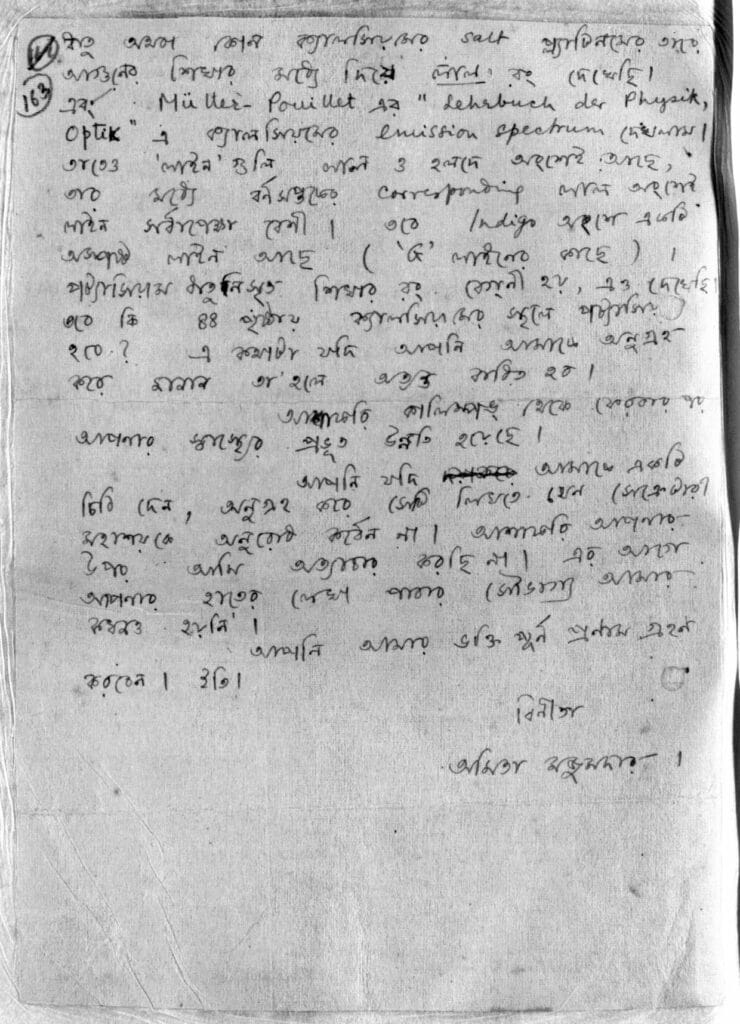 ধাতু অথবা কোন ক্যালসিয়ামের salt প্ল্যাটিনমের তারে
আগুনের শিখার মধ্যে দিয়ে লাল রং দেখেছি।
163 এবং Müller-Pouillet এর "Lehrbuch der Physik,
Optik" এ ক্যালসিয়মের emission spectrum দেখলাম।
তাতেও 'লাইন' গুলি লাল ও হলদে অংশেই আছে,
তার মধ্যে বর্ণসপ্তকের corresponding লাল অংশেই
লাইন সর্বাপেক্ষা বেশী। তবে Indigo অংশে একটি
অস্পষ্ট লাইন আছে ( 'G' লাইনের কাছে )।
পট্যাসিয়াম ধাতু নিসৃত শিখার রং বেগ্‌নী হয়, এও দেখেছি।
তবে কি 44 পৃষ্ঠায় ক্যালসিয়ামের স্থলে পট্যাসিয়াম
হবে? এ কথাটা যদি আপনি আমাকে অনুগ্রহ
করে জানান তা'হলে অত্যন্ত বাধিত হব।
আশাকরি কালিম্পঙ্ থেকে ফেরবার পর
আপনার স্বাস্থ্যের প্রভূত উন্নতি হয়েছে।
আপনি যদি আমাকে একটি
চিঠি দেন, অনুগ্রহ করে সেটি লিখতে যেন সেক্রেটারী
মহাশয়কে অনুরোধ কর্বেন না। আশাকরি আপনার
উপর আমি অত্যাচার করছি না। এর আগে
আপনার হাতের লেখা পাবার সৌভাগ্য আমার
কখনও হয়নি।
আপনি আমার ভক্তি পূর্ন প্রণাম গ্রহন
করবেন। ইতি।
বিনীতা
অমিতা মজুমদার।